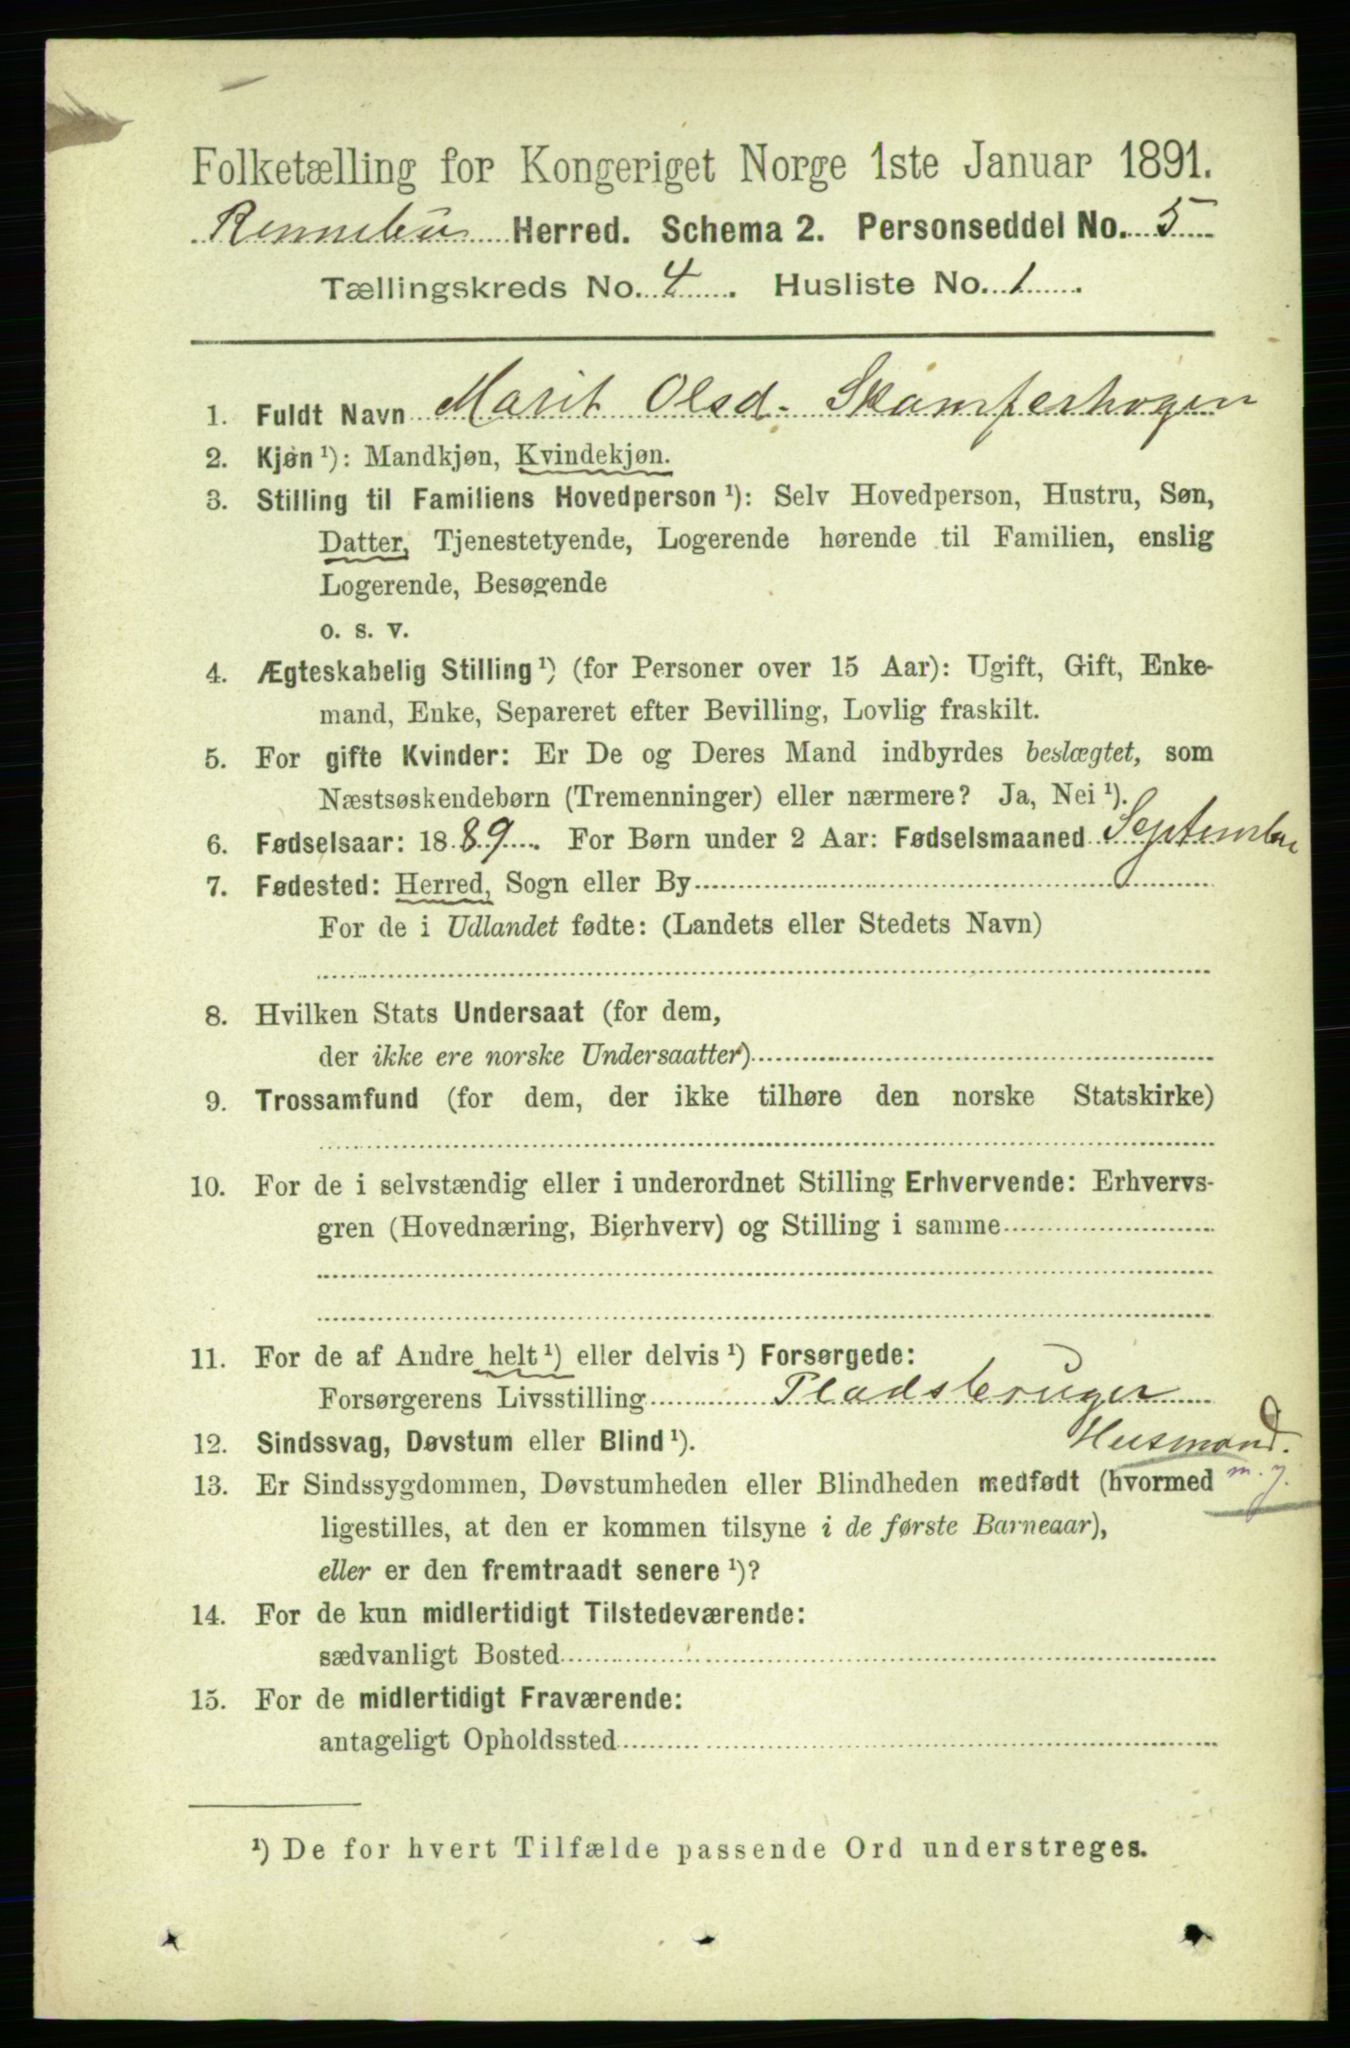 Folketælling for Kongeriget Norge 1ste Januar 1891.
Rennebu Herred. Schema 2. Personseddel No. 5
Tællingskreds No. 4. Husliste No. 1.
1. Fuldt Navn Marit Olsd. Skamferhogen
2. Kjøn ¹): Mandkjøn, Kvindekjøn.
3. Stilling til Familiens Hovedperson ¹): Selv Hovedperson, Hustru, Søn,
Datter, Tjenestetyende, Logerende hørende til Familien, enslig
Logerende, Besøgende
o. s. v.
4. Ægteskabelig Stilling ¹) (for Personer over 15 Aar): Ugift, Gift, Enke-
mand, Enke, Separeret efter Bevilling, Lovlig fraskilt.
5. For gifte Kvinder: Er De og Deres Mand indbyrdes beslægtet, som
Næstsøskendebørn (Tremenninger) eller nærmere? Ja, Nei ¹).
6. Fødselsaar: 1889. For Børn under 2 Aar: Fødselsmaaned September
7. Fødested: Herred, Sogn eller By
For de i Udlandet fødte: (Landets eller Stedets Navn)
8. Hvilken Stats Undersaat (for dem,
der ikke ere norske Undersaatter)
9. Trossamfund (for dem, der ikke tilhøre den norske Statskirke)
10. For de i selvstændig eller i underordnet Stilling Erhvervende: Erhvervs-
gren (Hovednæring, Bierhverv) og Stilling i samme
11. For de af Andre helt ¹) eller delvis ¹) Forsørgede:
Forsørgerens Livsstilling Pladsbruger
12. Sindssvag, Døvstum eller Blind ¹). Husmand.
13. Er Sindssygdommen, Døvstumheden eller Blindheden medfødt (hvormed m. j.
ligestilles, at den er kommen tilsyne i de første Barneaar),
eller er den fremtraadt senere ¹)?
14. For de kun midlertidigt Tilstedeværende:
sædvanligt Bosted
15. For de midlertidigt Fraværende:
antageligt Opholdssted
¹) De for hvert Tilfælde passende Ord understreges.